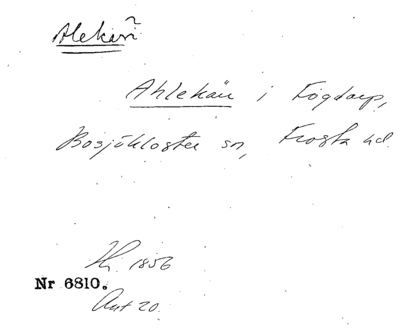 Alekärr
Ahlekärr i Fogdarp,
Bosjökloster sn, Frosta hd.
1856
Nr 6810.
Akt 20.